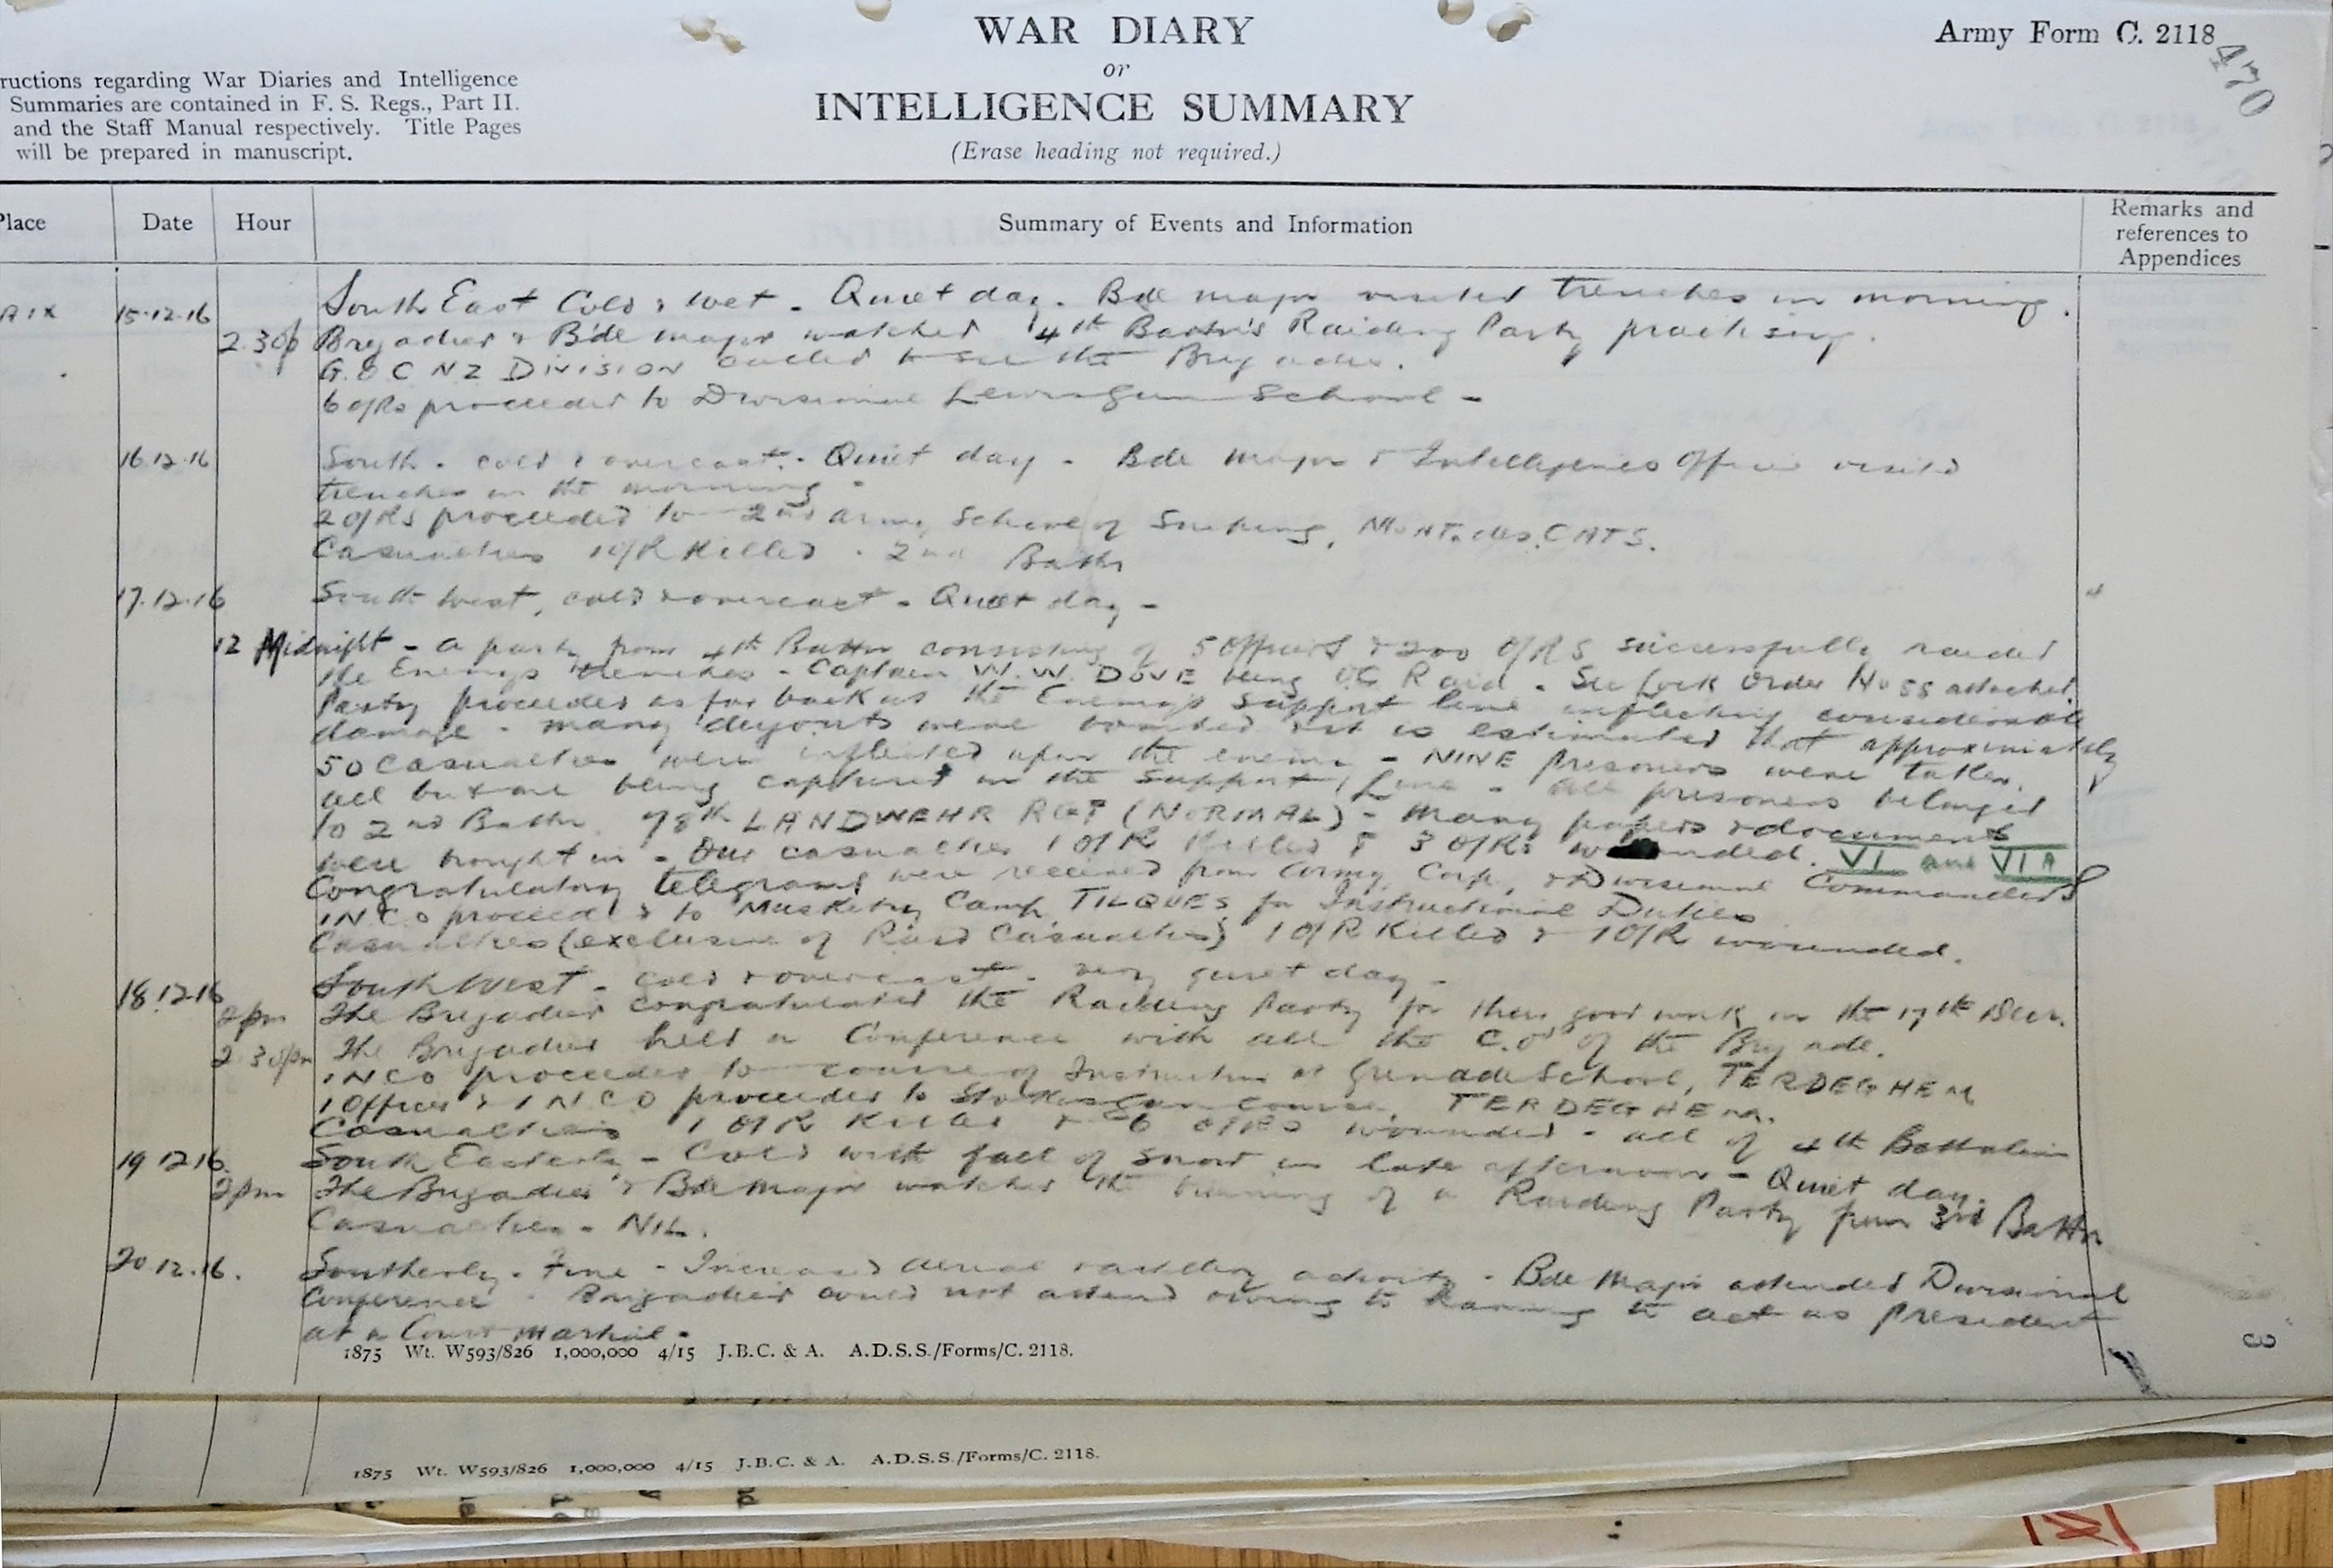 WAR DIARY
or
INTELLIGENCE SUMMARY
(Erase heading not required.)
Army Form C. 2118
470
ructions regarding War Diaries and Intelligence
Summaries are contained in F. S. Regs., Part II.
and the Staff Manual respectively. Title Pages
will be prepared in manuscript.
Place Date Hour Summary of Events and Information Remarks and references to Appendices
AIX 15.12.16 South East Cold & wet - Quiet day. Bde Major visited trenches in morning.
2.30p Brigadier & Bde Major watched 4th Battn's Raiding Party practising.
G.O C NZ DIVISION called to see the Brigadier.
6 O/Rs proceeded to Divisional Lewis Gun School -
16.12.16 South - cold & overcast - Quiet day - Bde Major & Intelligence Officer visited
trenches in the morning.
2 O/Rs proceeded to 2nd Army School of Sniping, MONT. des. CATS.
Casualties 1 O/R Killed - 2nd Battn
17.12.16 South West, cold & overcast - Quiet day -
12 Midnight - a party from 4th Battn consisting of 5 Officers & 200 O/RS successfully raided
the Enemys trenches - Captain W.W. DOVE being OC Raid - See Order No 55 attached
Party proceeded as far back as the Enemy's Support line inflicting considerable
damage - many dugouts were bombed & it is estimated that approximately
50 Casualties were inflicted upon the enemy - NINE prisoners were taken,
all but one being captured in the Support Line - all prisoners belonged
to 2nd Battn 78th LANDWEHR RGT (NORMAL) - Many papers & documents
were brought in - Our casualties 1 O/R Killed & 3 O/Rs wounded. VI and VI A
Congratulatory telegrams were received from Army, Corps, & Divisional Commanders
1 NCO proceeded to Musketry Camp TILQUES for Instructional Duties
Casualties (exclusive of Raid Casualties) 1 O/R Killed & 1 O/R wounded.
18.12.16 South West - cold & overcast - very quiet day -
2pm The Brigadier congratulated the Raiding Party for their good work on the 17th Decr.
2.30pm The Brigadier held a Conference with all the C.Os of the Brigade.
1 NCO proceeded to course of Instruction at Grenade School, TERDEGHEM
1 Officer & 1 NCO proceeded to Stokes Gun Course, TERDEGHEM.
Casualties 1 O/R Killed & 6 O/Rs wounded - all of 4th Battalion
19 12 16. South Easterly - Cold with fall of snow in late afternoon - Quiet day.
2pm The Brigadier & Bde Major watched the training of a Raiding Party from 3rd Battn
Casualties - NIL.
20 12.16. Southerly - Fine - Increased aerial & artillery activity - Bde Major attended Divisional
Conference - Brigadier could not attend owing to having to act as president
at a Court Martial -
1875 Wt. W593/826 1,000,000 4/15 J.B.C. & A. A.D.S.S./Forms/C. 2118.
1875 Wt. W593/826 1,000,000 4/15 J.B.C. & A. A.D.S.S./Forms/C. 2118.